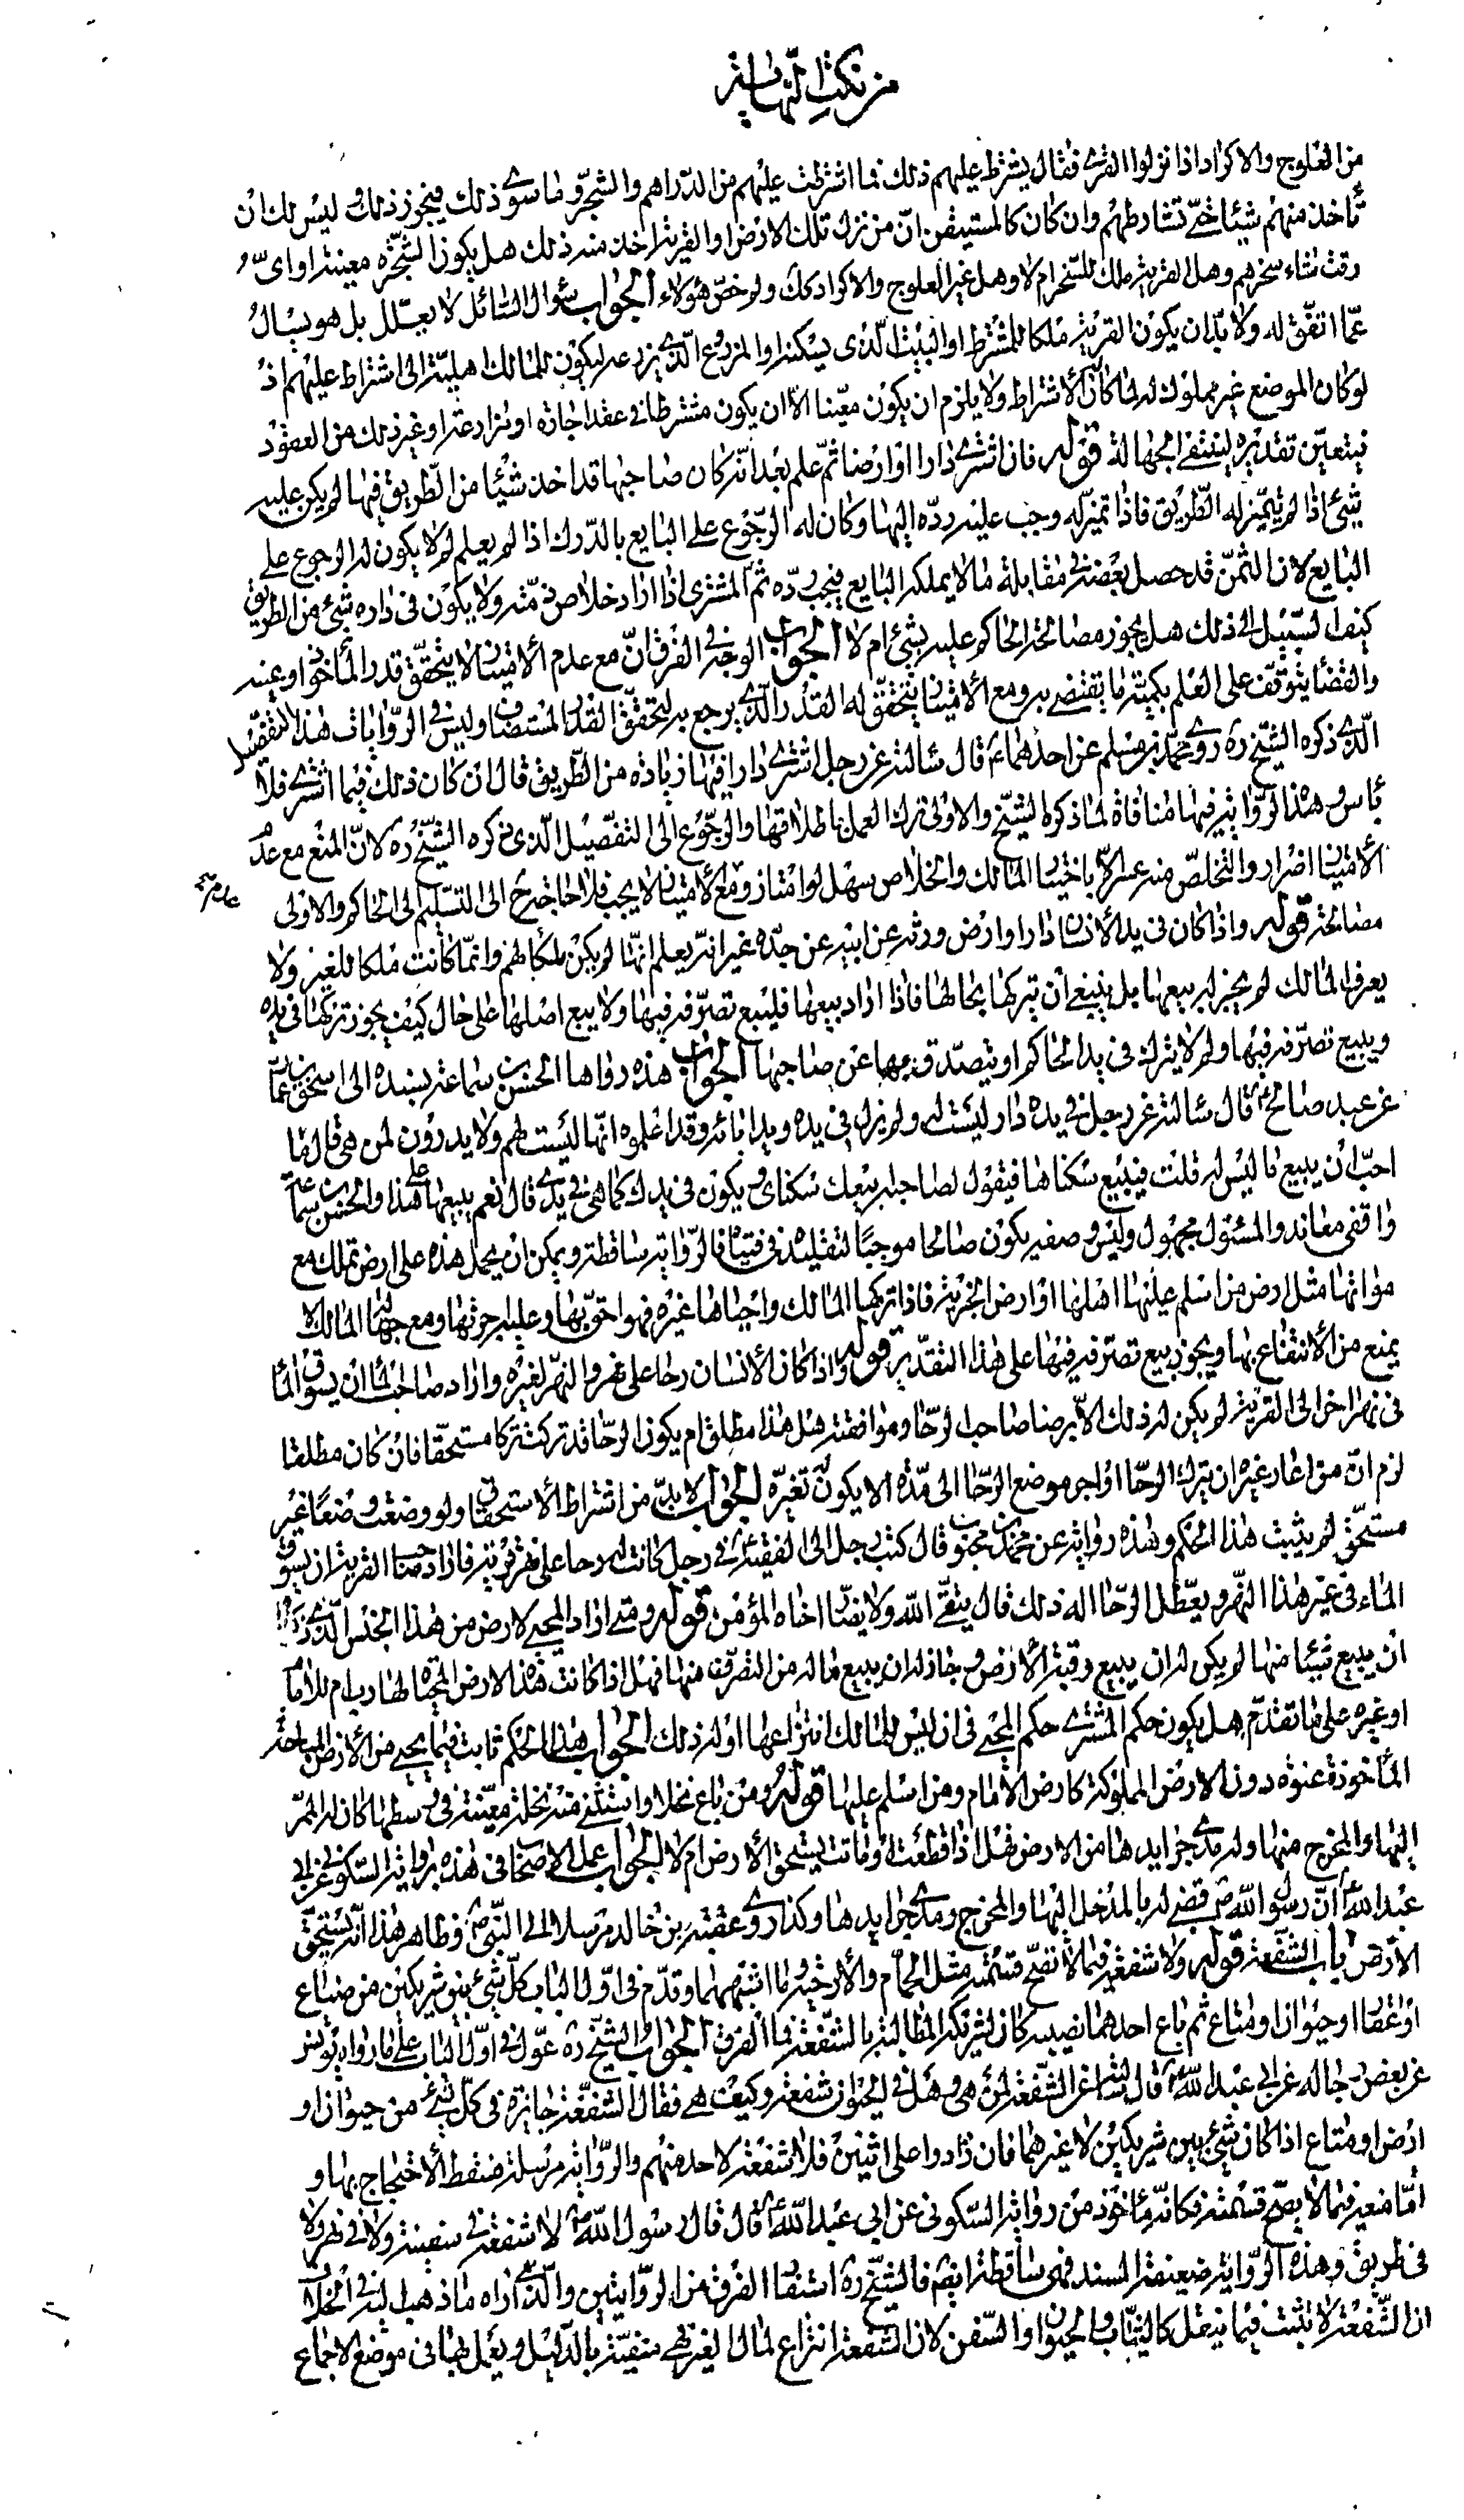 من نكت النهاية
من العلوج والاكراد اذا نزلوا القرى فقال يشترط عليهم ذلك فما اشترطت عليهم من الدراهم والسخرة وما سوى ذلك فيجوز ذلك وليس لك ان
تأخذ منهم شيئا حتى تشارطهم وان كان كالمستيقن ان من نزل تلك الارض او القرية اخذ منه ذلك هل يكون السخرة معينة او اى
وقت شاء سخرهم وهل القرية ملك للسخر ام لا وهل غير العلوج والاكراد كك ولم خص هؤلاء الجواب سؤال السائل لا يعلل بل هو يسال
عما اتفق له ولا بد ان يكون القرية ملكا للمشترط او البيت الذى يسكنه او المزروع الذى يزرعه ليكون للمالك اهلية الى اشتراط عليهم اذ
لو كان الموضع غير مملوك له لما كان الاشتراط ولا يلزم ان يكون معينا الا ان يكون مشترطا فى عقد اجارة او مزارعة او غير ذلك من العقود
فيتعين تقديره لينتفى الجهالة قوله فان اشترى دارا او ارضا ثم علم بعد انه كان صاحبها قد اخذ شيئا من الطريق فيها لم يكن عليه
شئ اذا لم يتميز له الطريق فاذا تميز له وجب عليه رده اليها وكان له الرجوع على البايع بالدرك اذا لم يعلم لم لا يكون له الرجوع على
البايع لان الثمن قد حصل بعضه فى مقابلة ما لا يملكه البايع فيجب رده ثم المشترى اذا اراد خلاص ذمته ولا يكون فى داره شئ من الطريق
كيف السبيل الى ذلك هل يجوز مصالحة الحاكم عليه بشئ ام لا الجواب الوجه فى الفرق ان مع عدم الامتياز لا يتحقق قدر المأخوذ او عينه
والقضاء يتوقف على العلم بكمية ما يقتضى به ومع الامتياز يتحقق له القدر الذى يرجع به لتحقق القدر المستضاف وليس فى الروايات هذا التفصيل
الذى ذكره الشيخ ره روى محمد بن مسلم عن احدهما ع قال سألته عن رجل اشترى دارا فيها زيادة من الطريق قال ان كان ذلك فيما اشترى فلا
باس وهذه الرواية فيها منافاة لما ذكره الشيخ والاولى ترك العمل باطلاقها والرجوع الى التفصيل الذى ذكره الشيخ ره لان المنع مع عدم
الامتياز اضرار والتخلص منه عسر الا باختيار المالك والخلاص سهل لو امتاز ومع الامتياز لا يجب فلا حاجة الى التسليم الى الحاكم والاولى
مصالحته قوله واذا كان فى يد الانسان دار او ارض ورثه عن ابيه عن جده غير انه يعلم انها لم يكن ملكا لهم وانما كانت ملكا للغير ولا
يعرف المالك لم يجز له بيعها بل ينبغى ان يتركها بحالها فاذا اراد بيعها فليبع تصرفه فيها ولا يبع اصلها على حال كيف يجوز تركها فى يده
ويبيع تصرفه فيها ولم لا يترك فى يد الحاكم او يتصدق بها عن صاحبها الجواب هذه رواها الحسن بن سماعة بسنده الى اسحق بن عمار
عن عبد صالح ع قال سألته عن رجل فى يده دار ليست له ولم يزل فى يده ويد ابائه وقد اعلموه انها ليست لهم ولا يدرون لمن هى قال ما
احب ان يبيع ما ليس له قلت فيبيع سكناها فيقول لصاحبه بيعك سكناى ويكون فى يدك كما هى فى يدى قال نعم يبيعها على هذا والحسن بن سماعة
واقفى معاند والمسئول مجهول وليس وصفه يكون صالحا موجبا لتقليده فى فتياه فالرواية ساقطة ويمكن ان يحمل هذه على ارض تملك مع
مواتها مثل ارض من اسلم عليها اهلها او ارض الجزية فاذا تركها المالك واحياها غيره فهو احق بها وعليه حرثها ومع جهل المالك لا
يمنع من الانتفاع بها ويجوز بيع تصرفه فيها على هذا التقدير قوله واذا كان لانسان رحا على نهر والنهر لغيره واراد صاحب الماء ان يسوق الماء
فى نهر اخر الى القرية لم يكن له ذلك الا برضا صاحب الرحا وموافقته هل هذا مطلق ام يكون الرحا قد تركت تركا مستحقا فان كان مطلقا
لزم ان من اعار غيره ان يترك الرحا او اجر موضع الرحا الى مدة الا يكون تغيره الجواب لا بد من اشتراط الاستحقاق ولو وضعت وضعا غير
مستحق لم يثبت هذا الحكم وهذه رواية عن محمد بن محبوب قال كتب رجل الى الفقيه ع فى رجل كانت له رحا على نهر قرية فاراد صاحب القرية ان يسوق
الماء فى غير هذا النهر ويعطل الرحا اله ذلك قال يتقى الله ولا يضار اخاه المؤمن قوله ومتى اراد المحيى لارض من هذا الجنس الذى ذكرناه
ان يبيع شيئا منها لم يكن له ان يبيع رقبة الارض وجاز له ان يبيع ما له من التصرف منها فهل اذا كانت هذه الارض المحياة لها رب ام للامام
او غيره على ما تقدم هل يكون حكم المشترى حكم المحيى فى ان ليس للمالك انتزاعها او له ذلك الجواب هذا الحكم ثابت فيما يحيى من الارض المباحة
المأخوذة عنوة دون الارض المملوكة كارض الامام ومن اسلم عليها قوله ومن باع نخلا واستثنى منه نخلة معينة فى وسطها كان له الممر
اليها والمخرج منها وله مدى جرايدها من الارض فهل اذا قطعت او ماتت يستحق الارض ام لا الجواب عمل الاصحاب فى هذه برواية السكونى عن ابى
عبد الله ع ان رسول الله ص قضى له بالمدخل اليها والمخرج ومدى جرايدها وكذا روى عقبة بن خالد مرسلا الى النبى ص وظاهر هذا انه يستحق
الارض باب الشفعة قوله ولا شفعة فيما لا تصح قسمته مثل الحمام والارحية وما اشبههما وتقدم فى اول الباب كل شئ بين شريكين من ضياع
او عقار او حيوان او متاع ثم باع احدهما نصيبه كان لشريكه المطالبة بالشفعة فما الفرق الجواب الشيخ ره عول فى اول الباب على ما رواه يونس
عن بعض رجاله عن ابى عبد الله ع قال سألته عن الشفعة لمن هى وهل فى الحيوان شفعة وكيف هى فقال الشفعة جائزة فى كل شئ من حيوان او
ارض او متاع اذا كان شئ بين شريكين لا غيرهما فان زادوا على اثنين فلا شفعة لاحد منهم والرواية مرسلة فسقط الاحتجاج بها و
اما منعه فيما لا يصح قسمته فكانه مأخوذ من رواية السكونى عن ابى عبد الله ع قال قال رسول الله ص لا شفعة فى سفينة ولا فى نهر ولا
فى طريق وهذه الرواية ضعيفة السند فهى ساقطة ايضا فالشيخ ره استفاد الفرق من الروايتين والذى اراه ما ذهب اليه فى الخلاف
ان الشفعة لا تثبت فيما ينقل كالثياب والحيوان والسفن لان الشفعة انتزاع لمال الغير فهى منفية بالدليل ويعمل بها فى موضع الاجماع